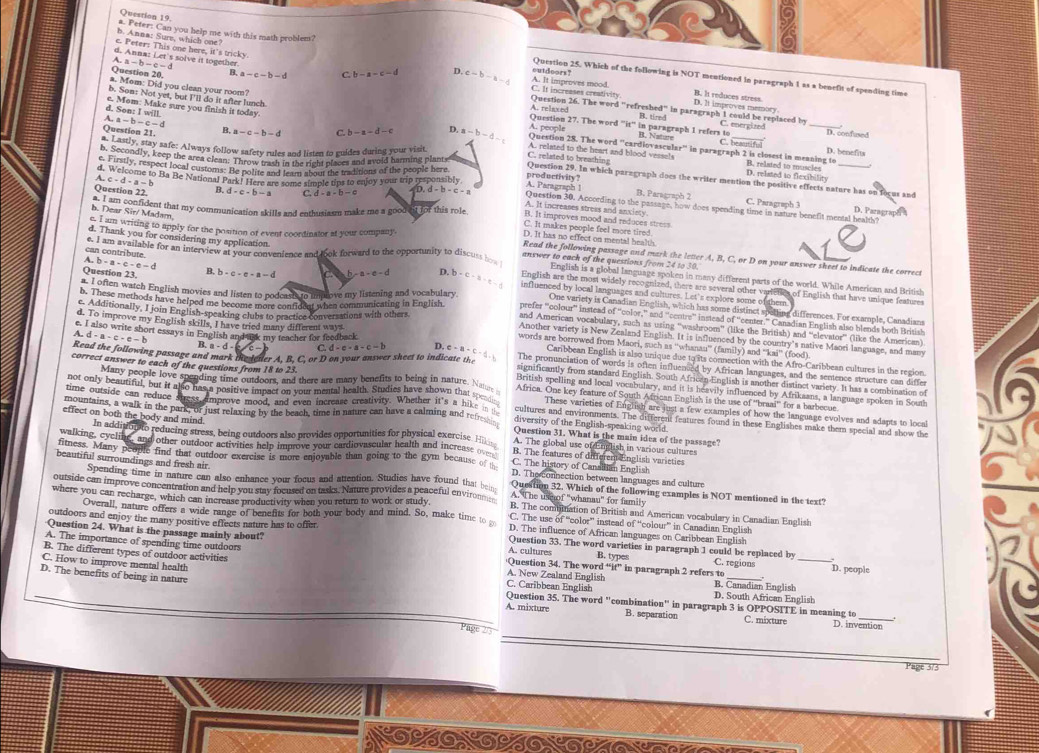 Question 19.
a. Peter: Can you help me with this math problem?
b. Anna: Sure, which one?
c. Peter: This one here, it's tricky.
d. Anna: Let's solve it together.
A. a – b – c – d B. a – c – b – d C. b – a – c – d D. c – b – a – d
Question 20.
a. Mom: Did you clean your room?
b. Son: Not yet, but I'll do it after lunch.
c. Mom: Make sure you finish it today.
d. Son: I will.
A. a – b – c – d B. a – c – b – d C. b – a – d – c D. a – b – d – c
Question 21.
a. Lastly, stay safe: Always follow safety rules and listen to guides during your visit.
b. Secondly, keep the area clean: Throw trash in the right places and avoid harming plants.
c. Firstly, respect local customs: Be polite and learn about the traditions of the people here.
d. Welcome to Ba Be National Park! Here are some simple tips to enjoy your trip responsibly.
A. c - d - a - b B. d - c - b – a C. d - a - b – c D. d - b - c – a
Question 22.
a. I am confident that my communication skills and enthusiasm make me a good fit for this role.
b. Dear Sir/ Madam,
c. I am writing to apply for the position of event coordinator at your company.
d. Thank you for considering my application.
e. I am available for an interview at your convenience and look forward to the opportunity to discuss how I
can contribute.
A. b - a - c - e – d B. b - c - e - a – d C. b - a - e - d D. b - c - a - e - d
Question 23.
a. I often watch English movies and listen to podcasts to improve my listening and vocabulary.
b. These methods have helped me become more confident when communicating in English.
c. Additionally, I join English-speaking clubs to practice conversations with others.
d. To improve my English skills, I have tried many different ways.
e. I also write short essays in English and ask my teacher for feedback.
A. d - a - c - e – b B. a - d - e - c - b C. d - e - a - c – b D. e - a - c - d - b
Read the following passage and mark the letter A, B, C, or D on your answer sheet to indicate the
correct answer to each of the questions from 18 to 25.
Many people love spending time outdoors, and there are many benefits to being in nature. Nature is
not only beautiful, but it also has a positive impact on your mental health. Studies have shown that spending
time outside can reduce stress, improve mood, and even increase creativity. Whether it's a hike in the
mountains, a walk in the park, or just relaxing by the beach, time in nature can have a calming and refreshing
effect on both the body and mind.
In addition to reducing stress, being outdoors also provides opportunities for physical exercise. Hiking,
walking, cycling other outdoor activities help improve your cardiovascular health and increase overall
fitness. Many people find that outdoor exercise is more enjoyable than going to the gym because of the
beautiful surroundings and fresh air.
Spending time in nature can also enhance your focus and attention. Studies have found that being
outside can improve concentration and help you stay focused on tasks. Nature provides a peaceful environment
where you can recharge, which can increase productivity when you return to work or study.
Overall, nature offers a wide range of benefits for both your body and mind. So, make time to go
outdoors and enjoy the many positive effects nature has to offer.
Question 24. What is the passage mainly about?
A. The importance of spending time outdoors
B. The different types of outdoor activities
C. How to improve mental health
D. The benefits of being in nature
Page 2/3
Question 25. Which of the following is NOT mentioned in paragraph 1 as a benefit of spending time
outdoors?
A. It improves mood. B. It reduces stress.
C. It increases creativity. D. It improves memory.
Question 26. The word "refreshed" in paragraph 1 could be replaced by ______.
A. relaxed B. tired C. energized D. confused
Question 27. The word "it" in paragraph 1 refers to ______.
A. people B. Nature C. beautiful D. benefits
Question 28. The word "cardiovascular" in paragraph 2 is closest in meaning to ______.
A. related to the heart and blood vessels B. related to muscles
C. related to breathing D. related to flexibility
Question 29. In which paragraph does the writer mention the positive effects nature has on focus and
productivity?
A. Paragraph 1 B. Paragraph 2 C. Paragraph 3 D. Paragraph 4
Question 30. According to the passage, how does spending time in nature benefit mental health?
A. It increases stress and anxiety.
B. It improves mood and reduces stress.
C. It makes people feel more tired.
D. It has no effect on mental health.
Read the following passage and mark the letter A, B, C, or D on your answer sheet to indicate the correct
answer to each of the questions from 24 to 30.
English is a global language spoken in many different parts of the world. While American and British
English are the most widely recognized, there are several other varieties of English that have unique features
influenced by local languages and cultures. Let's explore some of them.
One variety is Canadian English, which has some distinct spelling differences. For example, Canadians
prefer "colour" instead of "color," and "centre" instead of "center." Canadian English also blends both British
and American vocabulary, such as using "washroom" (like the British) and "elevator" (like the American).
Another variety is New Zealand English. It is influenced by the country's native Maori language, and many
words are borrowed from Maori, such as "whanau" (family) and "kai" (food).
Caribbean English is also unique due to its connection with the Afro-Caribbean cultures in the region.
The pronunciation of words is often influenced by African languages, and the sentence structure can differ
significantly from standard English. South African English is another distinct variety. It has a combination of
British spelling and local vocabulary, and it is heavily influenced by Afrikaans, a language spoken in South
Africa. One key feature of South African English is the use of "braai" for a barbecue.
These varieties of English are just a few examples of how the language evolves and adapts to local
cultures and environments. The different features found in these Englishes make them special and show the
diversity of the English-speaking world.
Question 31. What is the main idea of the passage?
A. The global use of English in various cultures
B. The features of different English varieties
C. The history of Canadian English
D. The connection between languages and culture
Question 32. Which of the following examples is NOT mentioned in the text?
A. The use of "whanau" for family
B. The combination of British and American vocabulary in Canadian English
C. The use of "color" instead of "colour" in Canadian English
D. The influence of African languages on Caribbean English
Question 33. The word varieties in paragraph 1 could be replaced by ______.
A. cultures B. types C. regions D. people
Question 34. The word "it" in paragraph 2 refers to ______.
A. New Zealand English B. Canadian English
C. Caribbean English D. South African English
Question 35. The word "combination" in paragraph 3 is OPPOSITE in meaning to ______.
A. mixture B. separation C. mixture D. invention
Page 3/3